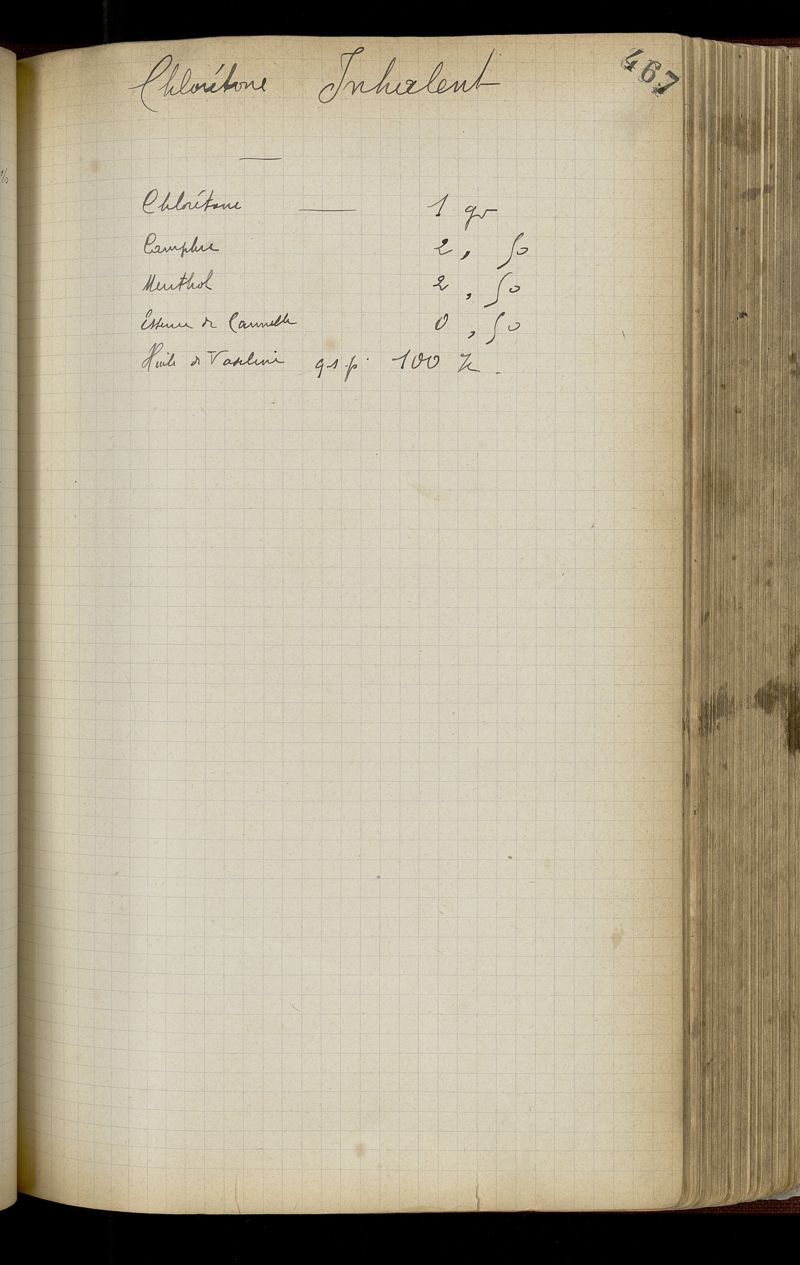 467
Chlorétone Inhalent
Chlorétone — 1 gr
Camphre 2, 50
Menthol 2, 50
Essence de Cannelle 0, 50
Huile de Vaseline q.s.p. 100
%